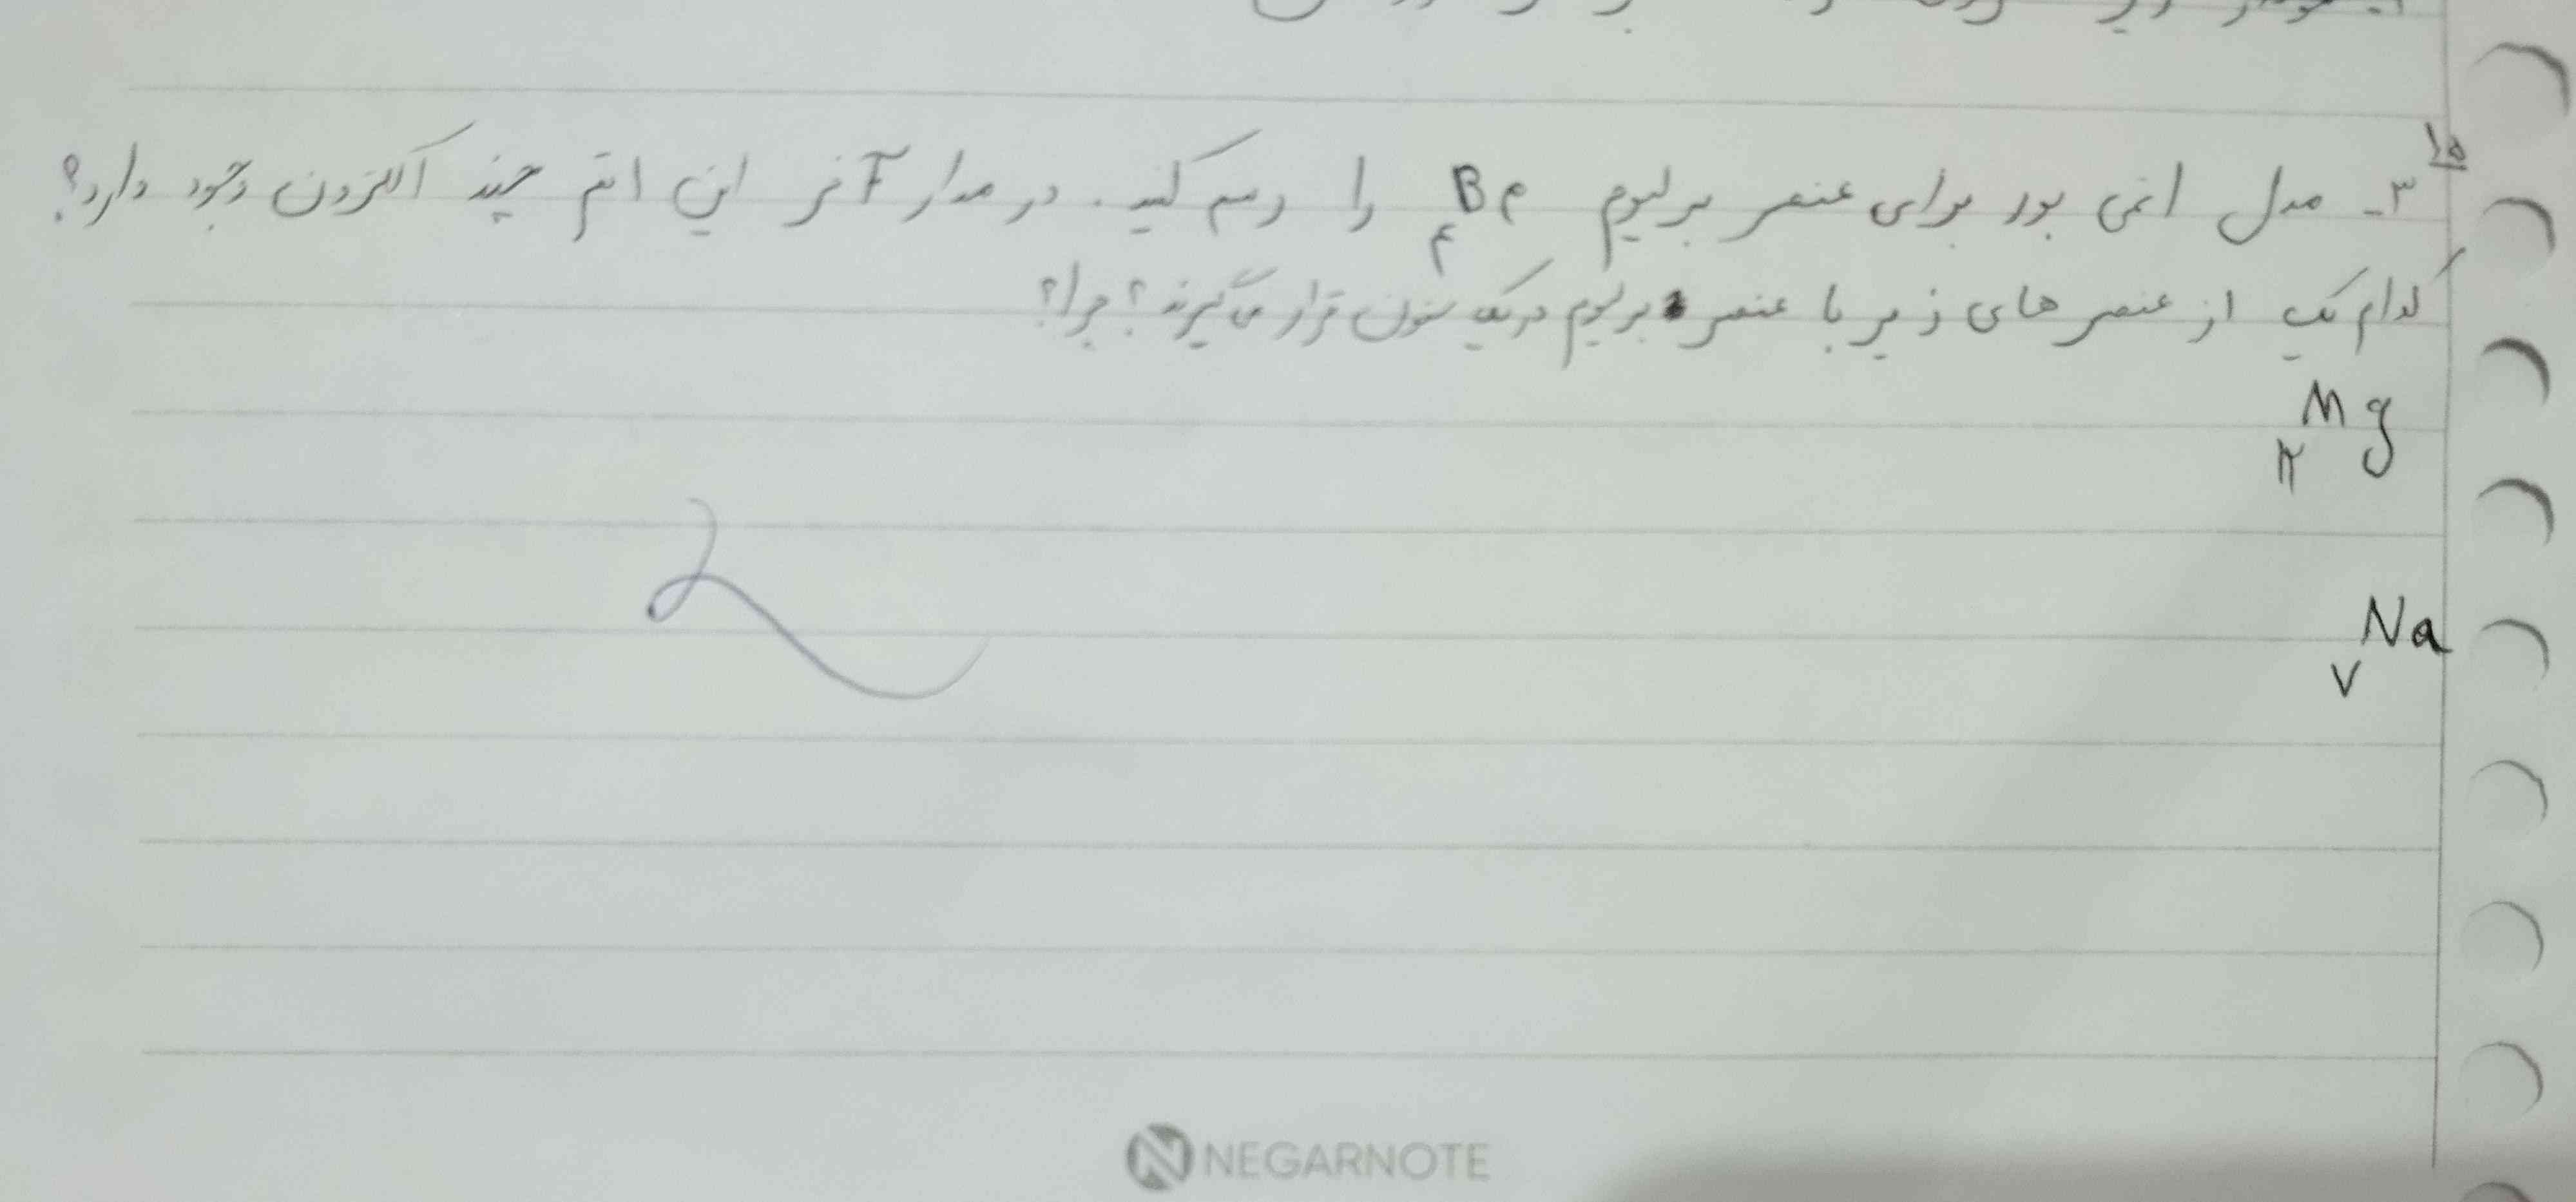 ۱/۵
۳- مدل اتمی بور برای عنصر برلیوم ۴Be را رسم کنید. در مدار آخر این اتم چند الکترون وجود دارد؟
کدام یک از عنصر های زیر با عنصر برلیوم در یک ستون قرار می گیرند؟ چرا؟
۱۲Mg
۷Na
NEGARNOTE